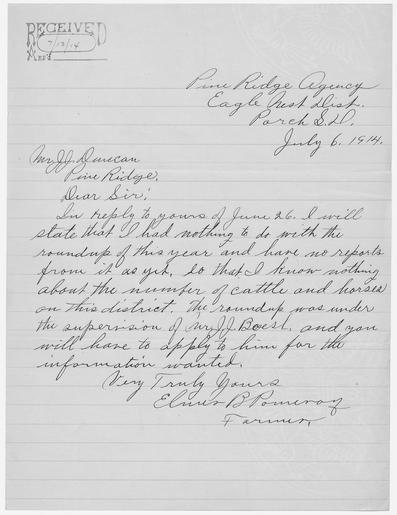 RECEIVED
7/13/14
Pine Ridge Agency
Eagle Nest Dist.
Porch S.D.
July 6. 1914.
Mr J.J. Duncan
Pine Ridge,
Dear Sir:
In reply to yours of June 26. I will
state that I had nothing to do with the
roundup of this year and have no reports
from it as yet, so that I know nothing
about the number of cattle and horses
on this district. The roundup was under
the supervision of Mr J.J. and you
will have to apply to him for the
information wanted.
Very Truly Yours
Elmer B Pomeroy
Farmer,